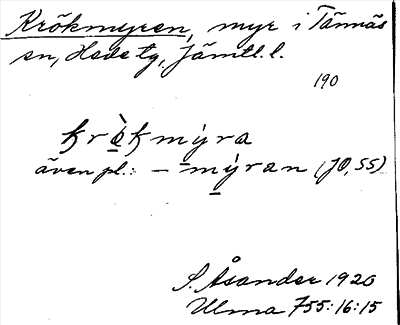 Krökmyren, myr i Tännäs
sn, Hede tg, Jämtl. l.
190
kròkmýra
även pl.: – -mýran (JO, SS)
S. Åsander 1920
Ulma 755:16:15